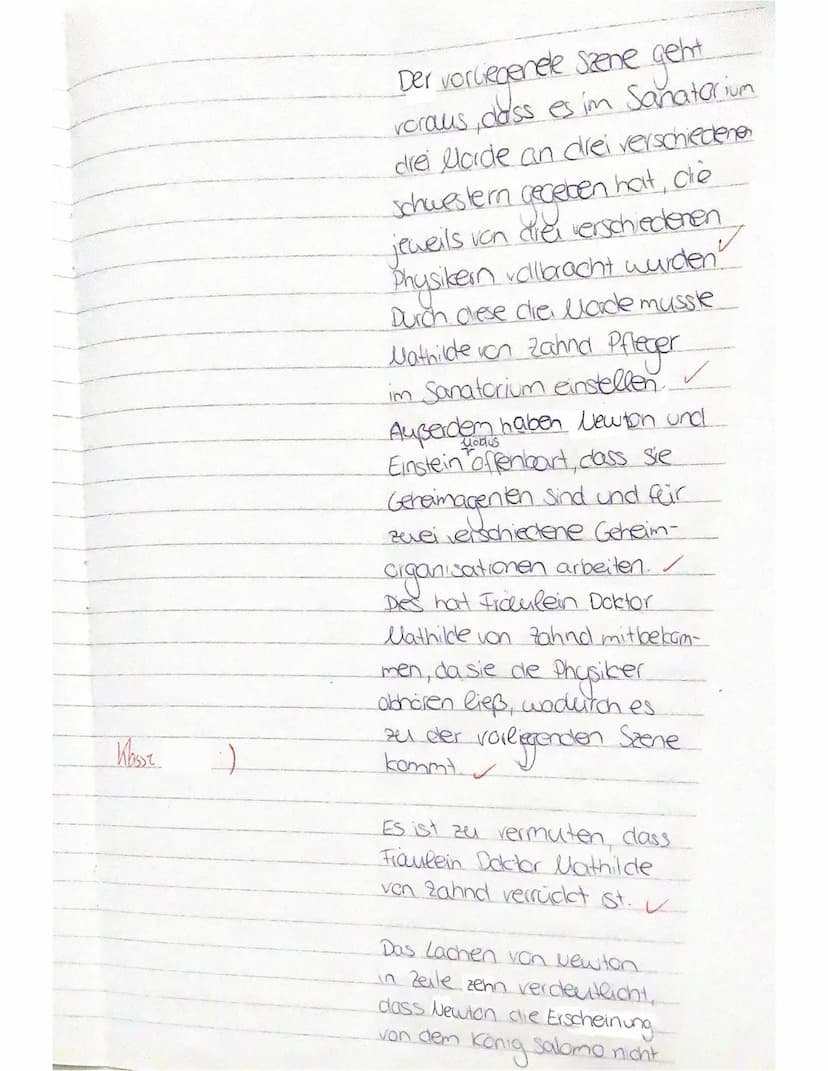 Der vorliegende Szene geht
voraus, dass es im Sanatorium
drei Morde an drei verschiedenen
schwestern gegeben hat, die
jeweils von drei verschiedenen
Physikern vollbracht wurden
Durch diese drei Morde musste
Mathilde von Zahnd Pfleger
im Sanatorium einstellen.
Außerdem haben Newton und
Möbius
Einstein offenbart, dass sie
Geheimagenten sind und für
zwei verschiedene Geheim-
organisationen arbeiten.
Des hat Fräulein Doktor
Mathilde von Zahnd mitbekom-
men, da sie die Physiker
abhören ließ, wodurch es
zu der vorliegenden Szene
kommt.
:)
Es ist zu vermuten, dass
Fräulein Doktor Mathilde
von Zahnd verrückt ist.
Das Lachen von Newton
in Zeile zehn verdeutlicht,
dass Newton die Erscheinung
von dem König Salomo nicht